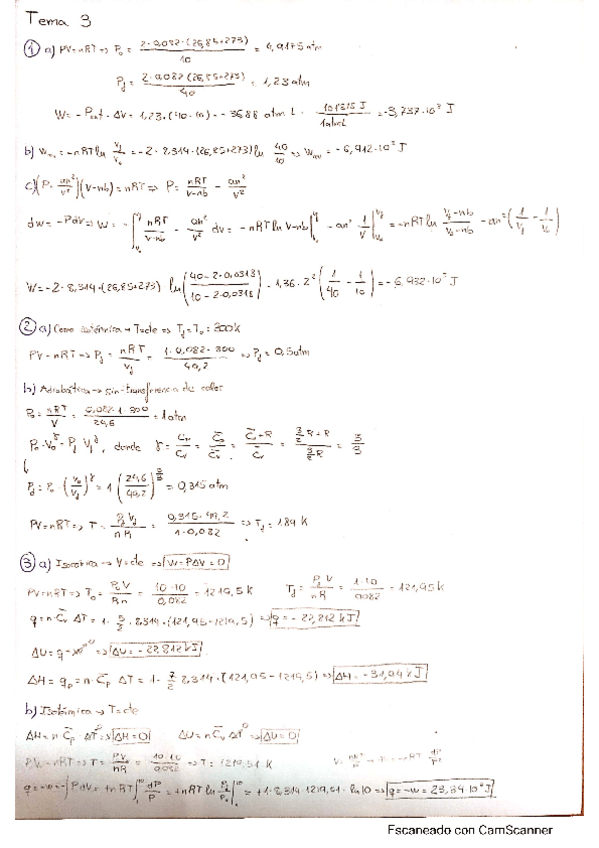 Tema 3
① a) PV=nRT => P₀ = 2·0,082·(26,85+273) / 10 = 4,9175 atm
P_f = 2·0,082·(26,85+273) / 40 = 1,23 atm
W = -P_ext·ΔV = 1,23·(40-10) = -36,88 atm·L · 101325 J / = -3,737·10³ J
b) W_rev = -nRT ln V_f/V₀ = -2·8,314·(26,85+273) ln 40/10 => W_rev = -6,912·10³ J
c) (P + an²/V²)(V-nb) = nRT => P = nRT/V-nb - an²/V²
dw = -PdV => W = -∫ nRT/V-nb - an²/V² dV = -nRT ln V-nb | - an² 1/V | = -nRT ln V_f-nb/V₀-nb - an² (1/V_f - 1/V₀)
W = -2·8,314·(26,85+273) ln (40-2·0,0318 / 10-2·0,0318) - 1,36·2² (1/40 - 1/10) = -6,932·10³ J
② a) Como isotérmica → T=cte => T_f = T₀ = 300K
PV=nRT => P_f = nRT/V_f = 1·0,082·300 / 49,2 => P_f = 0,5 atm
b) Adiabática → sin transferencia de calor
P₀ = nRT/V = 0,082·1·300 / 24,6 = 1 atm
P₀·V₀^γ = P_f V_f^γ, donde γ = = = C̄v+R / C̄v = 3/2 R+R / 3/2 R = 5/3
P_f = P₀·(V₀/V_f)^γ = 1 (24,6/49,2)^5/3 = 0,315 atm
PV=nRT => T = P_f V_f / nR = 0,315·49,2 / 1·0,082 => T_f = 189 K
③ a) Isocórica → V=cte => W=-PΔV=0
PV=nRT => T₀ = P₀V/Rn = 10·10 / 0,082 = 1219,5 K T_f = P_f V / nR = 1·10 / 0,082 = 121,95 K
q = n·C̄v ΔT = 1·5/2·8,314·(121,95-1219,5) => q = -22,812 kJ
ΔU = q + w => ΔU = -22,812 kJ
ΔH = q_p = n·C̄p ΔT = 1·7/2·8,314·(121,95-1219,5) => ΔH = -31,94 kJ
b) Isotérmica → T=cte
ΔH = n C̄p ΔT => ΔH=0 ΔU = n C̄v ΔT => ΔU=0
PV=nRT => T = PV/nR = 10·10 / 0,082 => T = 1219,51 K
q = -w = ∫PdV = +nRT ∫ dP/P = +nRT ln = +1·8,314·1219,51·ln 10 => q=-w = 23,34·10³ J
Escaneado con CamScanner